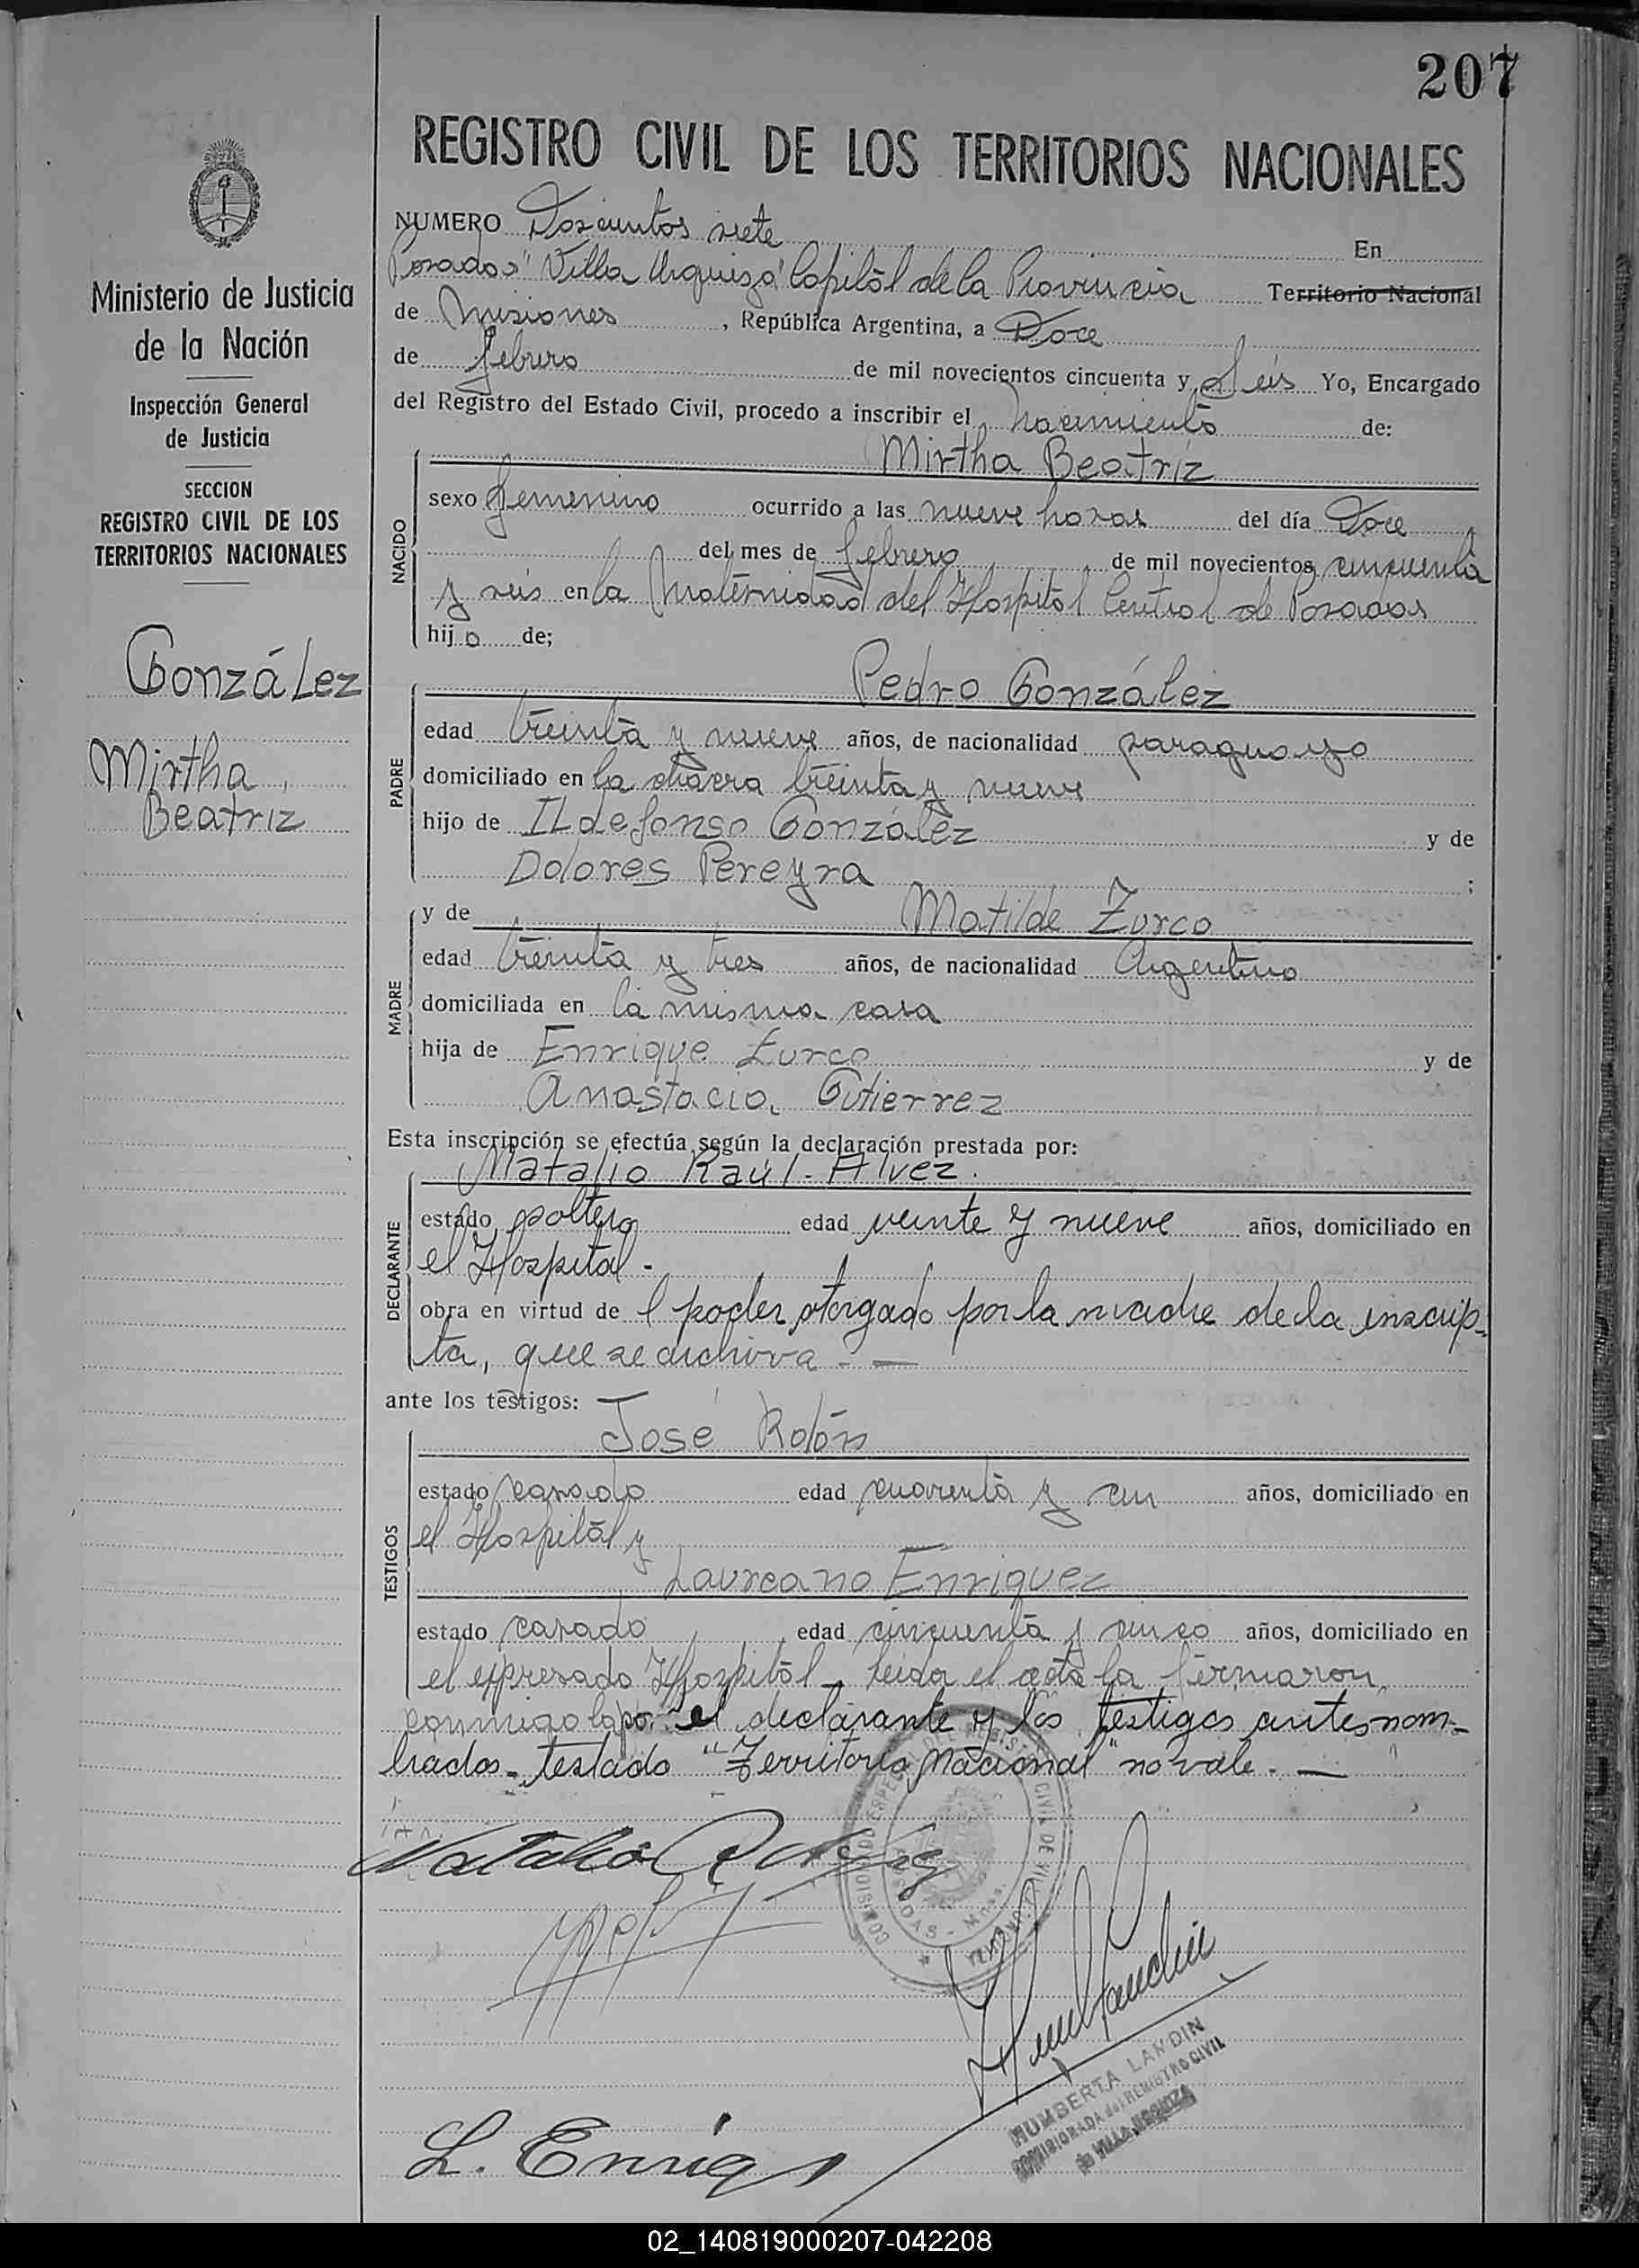 207
REGISTRO CIVIL DE LOS TERRITORIOS NACIONALES
Ministerio de Justicia
de la Nación
Inspección General
de Justicia
SECCION
REGISTRO CIVIL DE LOS
TERRITORIOS NACIONALES
González
Mirtha
Beatriz
NUMERO Doscientos siete En
Posadas "Villa Urquiza" Capital de la Provincia Territorio Nacional
de Misiones, República Argentina, a Doce
de febrero de mil novecientos cincuenta y Seis Yo, Encargado
del Registro del Estado Civil, procedo a inscribir el nacimiento de:
Mirtha Beatriz
NACIDO
sexo femenino ocurrido a las nueve horas del día Doce
del mes de febrero de mil novecientos cincuenta
y seis en la Maternidad del Hospital Central de Posadas
hija de;
Pedro González
PADRE
edad treinta y nueve años, de nacionalidad paraguayo
domiciliado en la chacra treinta y nueve
hijo de ILdefonso González y de
Dolores Pereyra ;
y de Matilde Zurco
MADRE
edad treinta y tres años, de nacionalidad Argentina
domiciliada en la misma casa
hija de Enrique Zurco y de
Anastacia Gutierrez
Esta inscripción se efectúa según la declaración prestada por:
Natalio Raúl Alvez.
DECLARANTE
estado soltero edad veinte y nueve años, domiciliado en
el Hospital.-
obra en virtud de l poder otorgado por la madre de la inscrip-
ta, que se archiva - —
ante los testigos:
José Rolón
TESTIGOS
estado casado edad cuarenta y un años, domiciliado en
el Hospital y
Laureano Enriquez
estado casado edad cincuenta y cinco años, domiciliado en
el expresado Hospital - leida el acta la firmaron
conmigo el declarante y los testigos antes nom-
brados - testado "Territorio Nacional" no vale. —
Natalio R
L. Enriq
HUMBERTA LANDIN
COMISIONADA del REGISTRO CIVIL
de VILLA URQUIZA
02_140819000207-042208